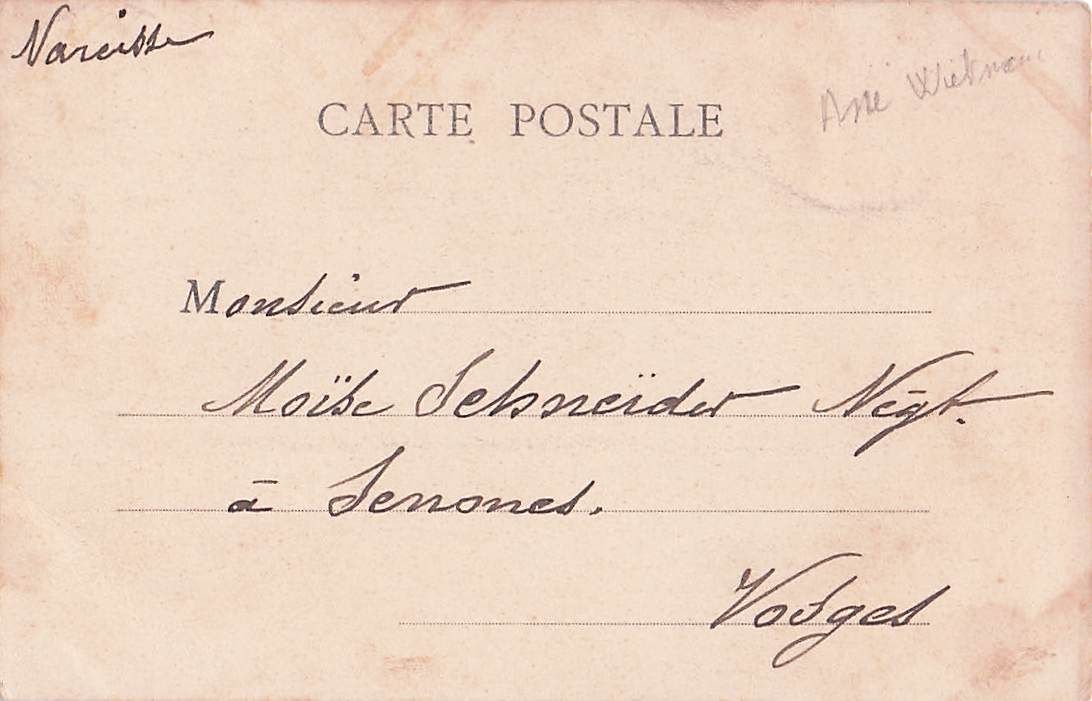 Narcisse
CARTE POSTALE
Monsieur
Moïse Schneïder Négt.
à Senones.
Vosges